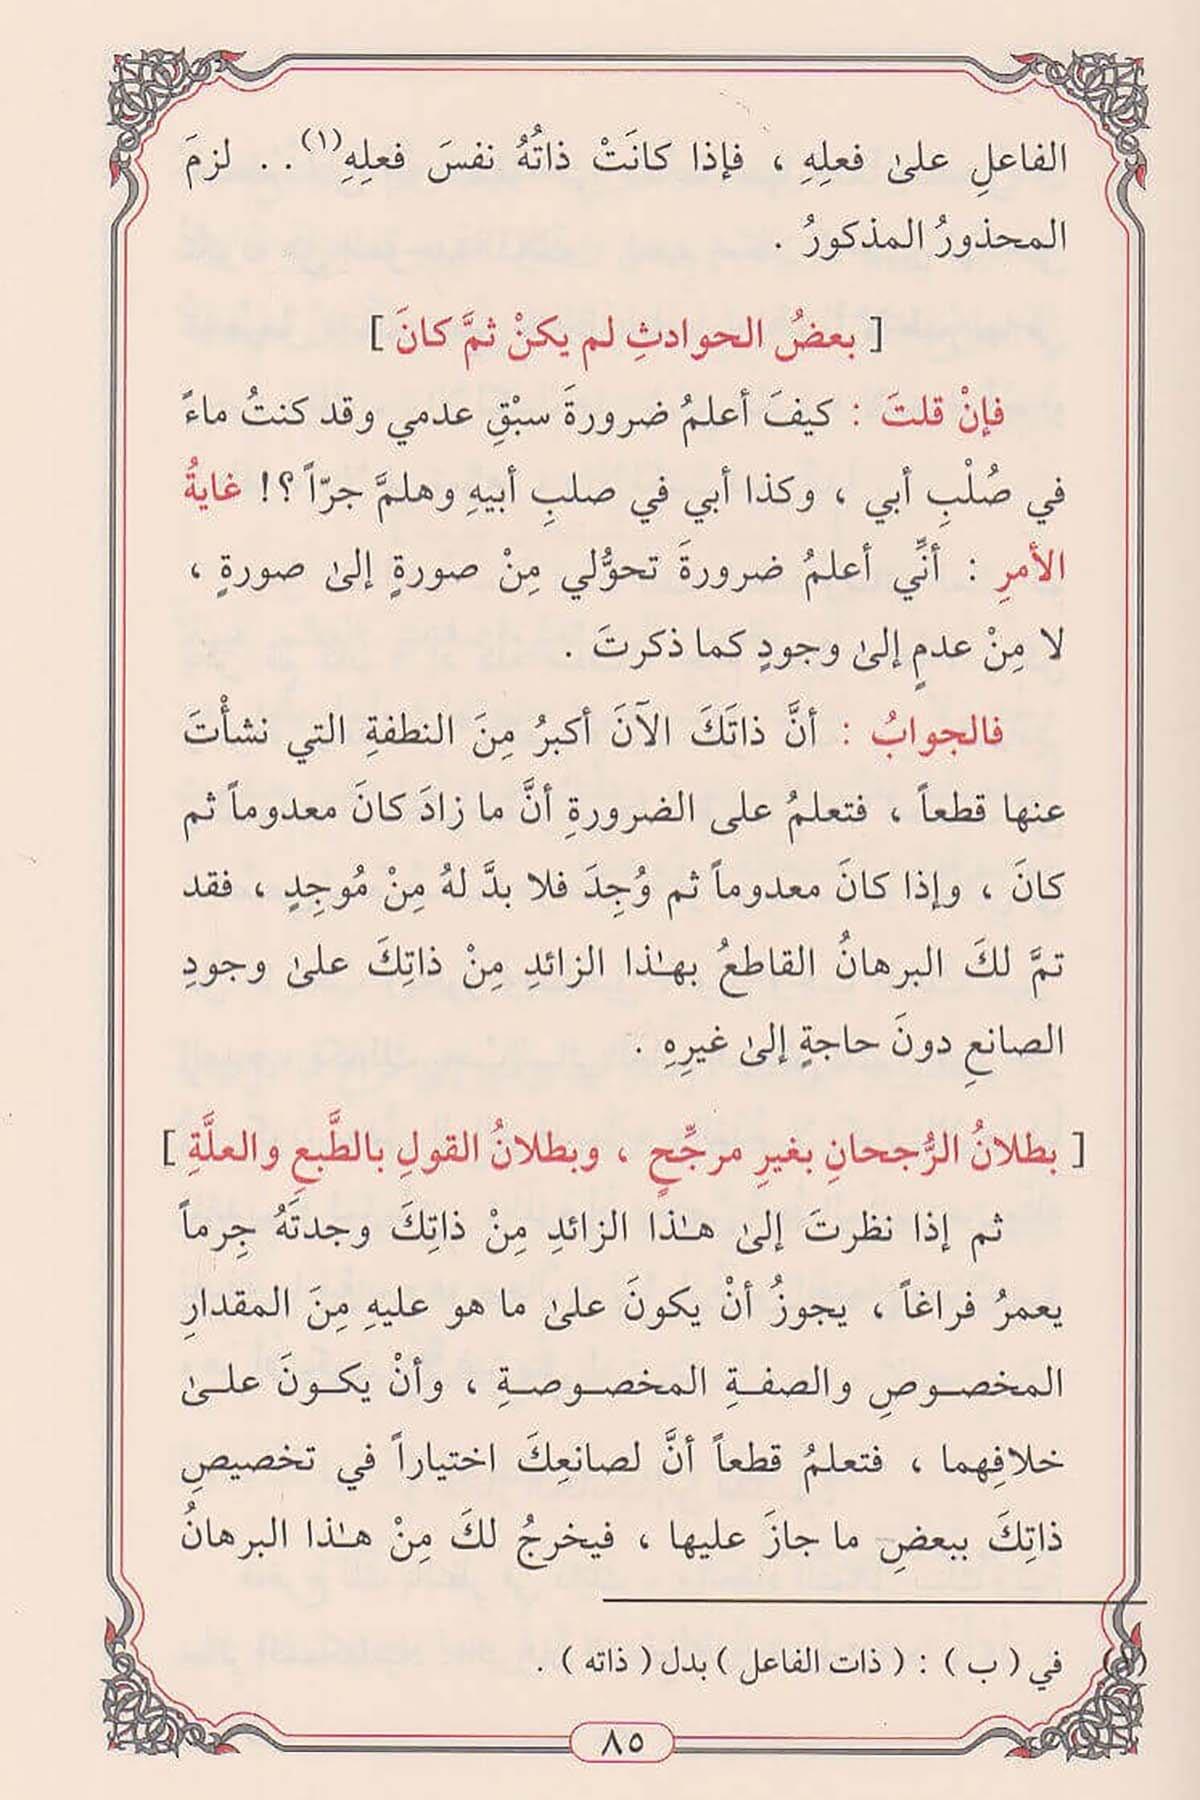 الفاعلِ علىٰ فعلِهِ ، فإذا كانَتْ ذاتُهُ نفسَ فعلِهِ(١) .. لزمَ
المحذورُ المذكورُ .
[ بعضُ الحوادثِ لم يكنْ ثمَّ كانَ ]
فإنْ قلتَ : كيفَ أعلمُ ضرورةَ سبْقِ عدمي وقد كنتُ ماءً
في صُلْبِ أبي ، وكذا أبي في صلبِ أبيهِ وهلمَّ جرّاً ؟! غايةُ
الأمرِ : أنِّي أعلمُ ضرورةَ تحوُّلي مِنْ صورةٍ إلىٰ صورةٍ ،
لا مِنْ عدمٍ إلىٰ وجودٍ كما ذكرتَ .
فالجوابُ : أنَّ ذاتَكَ الآنَ أكبرُ مِنَ النطفةِ التي نشأْتَ
عنها قطعاً ، فتعلمُ على الضرورةِ أنَّ ما زادَ كانَ معدوماً ثم
كانَ ، وإذا كانَ معدوماً ثم وُجِدَ فلا بدَّ لهُ مِنْ مُوجِدٍ ، فقد
تمَّ لكَ البرهانُ القاطعُ بهـٰذا الزائدِ مِنْ ذاتِكَ علىٰ وجودِ
الصانعِ دونَ حاجةٍ إلىٰ غيرِهِ .
[ بطلانُ الرُّجحانِ بغيرِ مرجِّحٍ ، وبطلانُ القولِ بالطَّبعِ والعلَّةِ ]
ثم إذا نظرتَ إلىٰ هـٰذا الزائدِ مِنْ ذاتِكَ وجدتَهُ جِرماً
يعمرُ فراغاً ، يجوزُ أنْ يكونَ علىٰ ما هو عليهِ مِنَ المقدارِ
المخصوصِ والصفةِ المخصوصةِ ، وأنْ يكونَ علىٰ
خلافِهما ، فتعلمُ قطعاً أنَّ لصانعِكَ اختياراً في تخصيصِ
ذاتِكَ ببعضِ ما جازَ عليها ، فيخرجُ لكَ مِنْ هـٰذا البرهانُ
(١) في ( ب ) : ( ذات الفاعل ) بدل ( ذاته ) .
٨٥